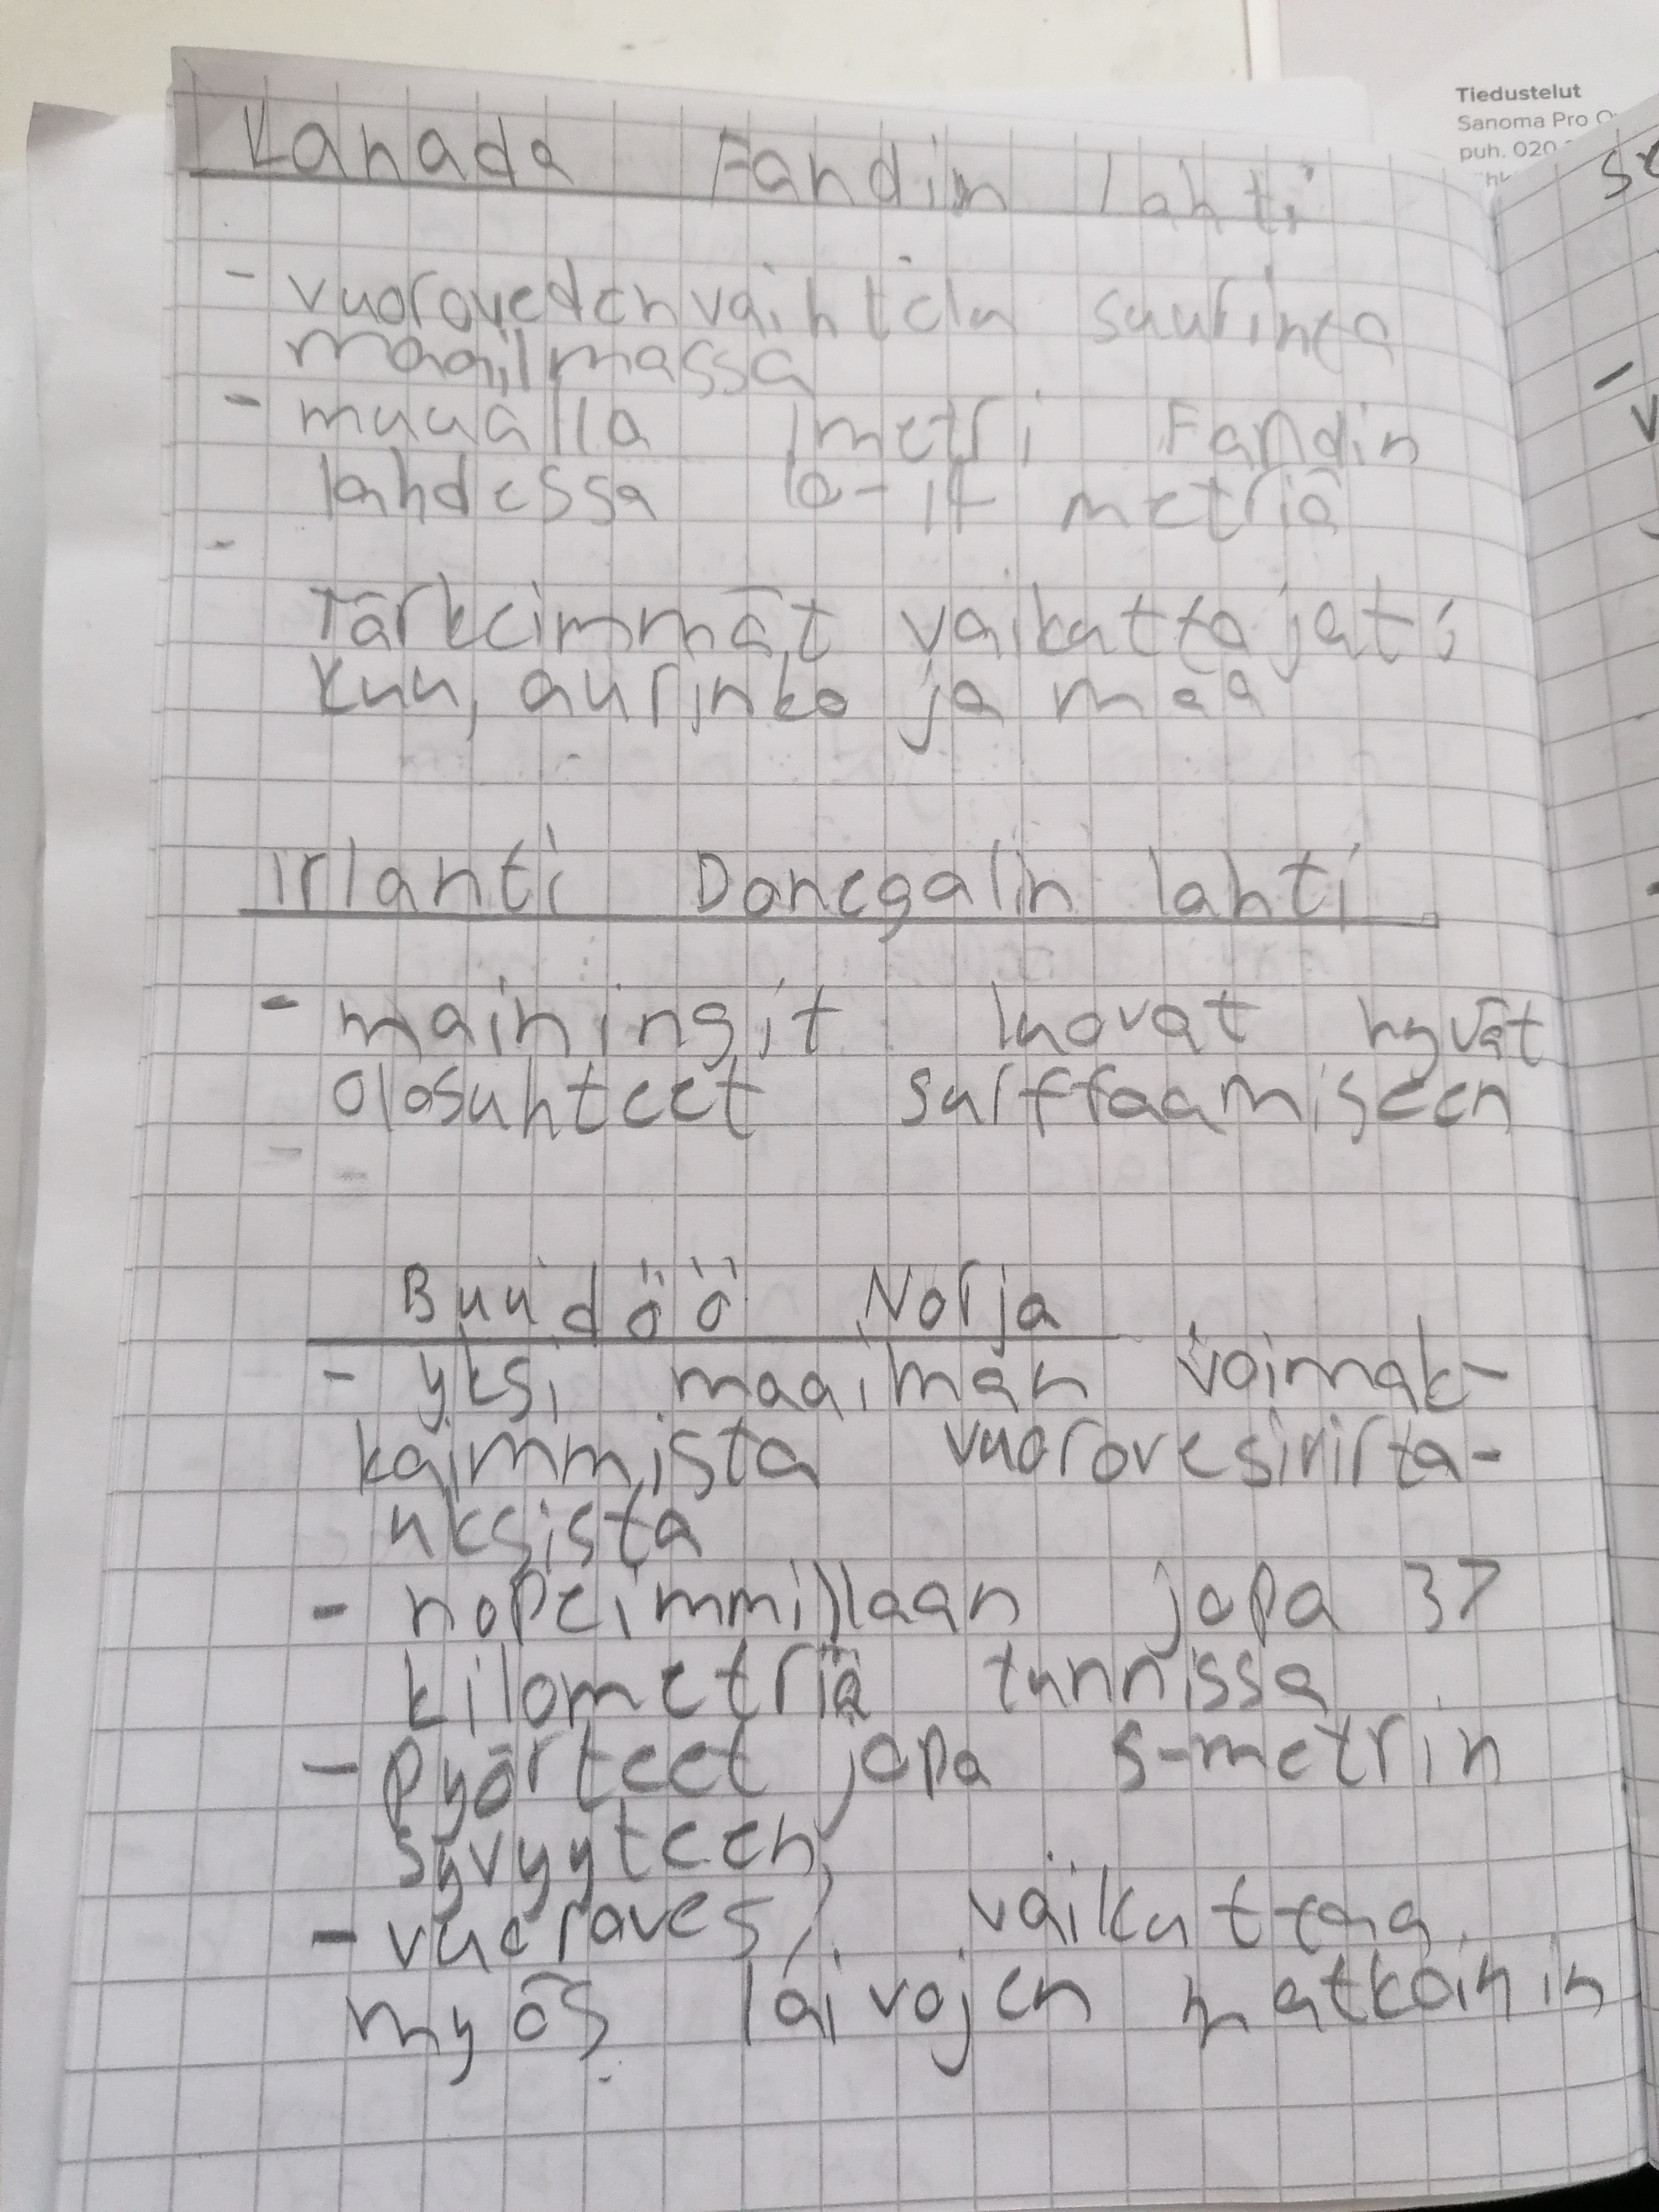 Tiedustelut
Sanoma Pro O
puh. 020
Kanada Fandin lahti
- vuorovedenvaihtelu suurinta
maailmassa
- muualla 1metri Fandin
lahdessa 10-14 metriä
-
Tärkeimmät vaikuttajat:
Kuu, aurinko ja maa
Irlanti Donegalin lahti
- mainingit luovat hyvät
olosuhteet surffaamiseen
Buudöö Norja
- yksi maaiman voimak-
kaimmista vuorovesivirta-
uksista
- nopeimmillaan jopa 37
kilometriä tunnissa
- pyörteet jopa 5-metrin
syvyyteen
- vuorovesi vaikuttaa
myös laivojen matkoinin